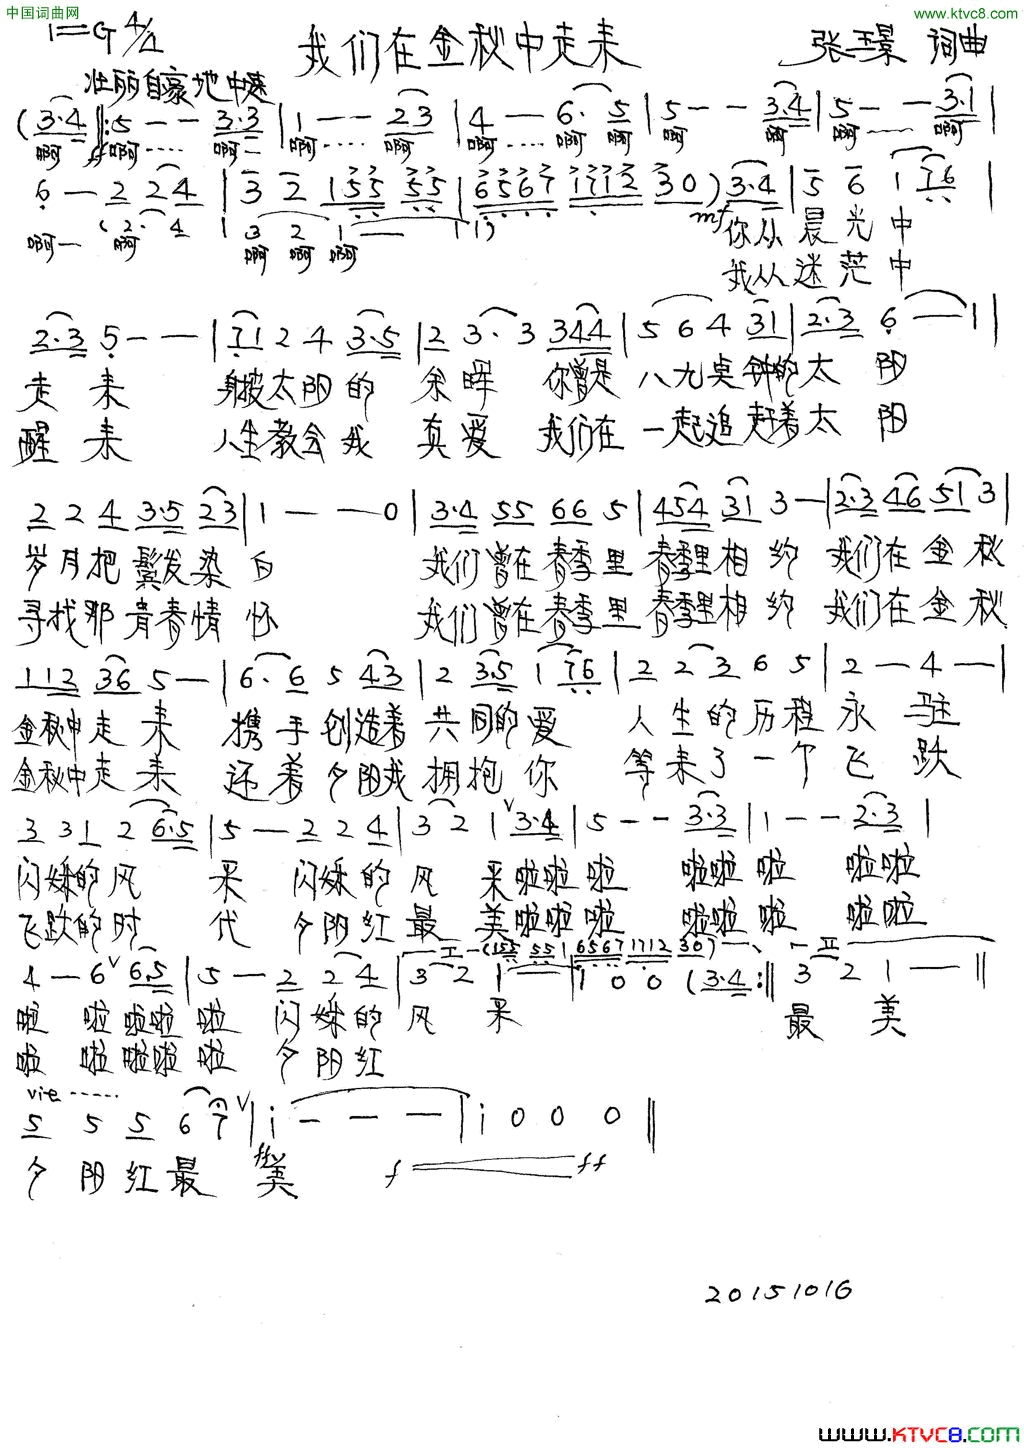 中国词曲网
www.ktvc8.com
1=G 4/4
我们在金秋中走来
张玉景 词曲
壮丽自豪地 中速
(3·4 ‖: 5 - - 3·3 | 1 - - 23 | 4 - 6· 5 | 5 - - 34 | 5 - - 3·1 |
啊 ff 啊…… 啊一 啊…… 啊 啊…… 啊 啊 啊 啊 啊…… 啊
6 - 2 24 | 3 2 155 55 | 6567 1712 30 ) 3·4 | 5 6 1 76 |
(2· 4 | 3 2 1 - | 1)
啊一 啊 啊 啊 啊
mf
你从晨光中
我从迷茫中
2·3 5 - - | 71 2 4 3·5 | 2 3· 3 344 | 5 6 4 31 | 2·3 6 - |
走来 身披太阳的余晖 你曾是八九点钟的太阳
醒来 人生教会我真爱 我们在一起追赶着太阳
2 2 4 3·5 23 | 1 - - 0 | 3·4 55 66 5 | 454 31 3 - | 2·3 46 51 3 |
岁月把鬓发染白 我们曾在春季里春季里相约 我们在金秋
寻找那青春情怀 我们曾在春季里春季里相约 我们在金秋
112 36 5 - | 6· 6 5 43 | 2 3·5 1 76 | 2 2 3 6 5 | 2 - 4 - |
金秋中走来 携手创造着共同的爱 人生的历程永驻
金秋中走来 还着夕阳我拥抱你 等来了一个飞跃
3 31 2 6·5 | 5 - 2 2 4 | 3 2 1 ∨ 3·4 | 5 - - 3·3 | 1 - - 2·3 |
闪烁的风采 闪烁的风采啦啦啦 啦啦啦 啦啦
飞跃的时代 夕阳红最美啦啦啦 啦啦啦 啦啦
(155 55 | 6567 1712 30)
4 - 6 ∨ 65 | 5 - 2 24 | 3 2 1 - | 1 0 0 (3·4 :‖ 3 2 1 - ‖
啦 啦啦啦啦 闪烁的风采 最美
啦 啦啦啦啦 夕阳红
vie ……
5 5 5 6 7 ∨ | i - - - | i 0 0 0 ‖
夕阳红最美 f ff
20151016
www.KTVC8.com